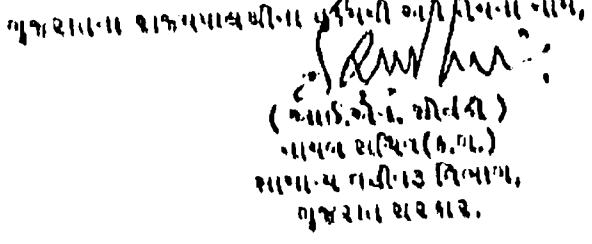 ગુજરાતના રાજ્યપાલશ્રીના હુકમથી અને તેમના નામે,
નાયબ સચિવ(ક.ગ.)
સામાન્ય વહીવટ વિભાગ,
ગુજરાત સરકાર.